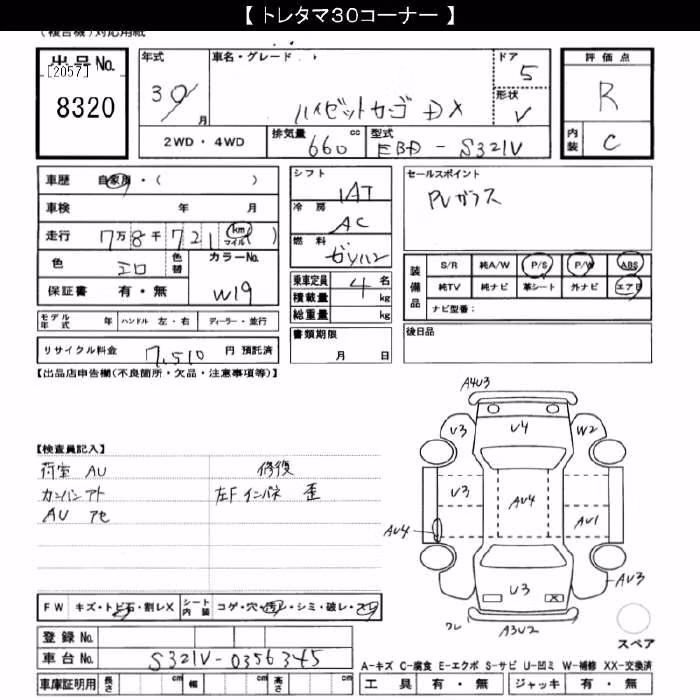 【 トレタマ30コーナー 】
(複合機)対応用紙
出品No.
[2057]
8320
年式
30
月
車名・グレード
ハイゼットカーゴ DX
ドア
5
形状
V
評価点
R
内装
C
2WD・4WD
排気量
660
cc
型式
EBD-S321V
車歴 自家用・( )
車検 年 月
走行 7万8千721 (km マイル)
色 シロ 色替
カラーNo.
W19
保証書 有・無
モデル年式 年 ハンドル 左・右 ディーラー・並行
リサイクル料金 7,510 円 預託済
シフト
IAT
冷房
AC
燃料
ガソリン
乗車定員 4 名
積載量 kg
総重量 kg
書類期限
月 日
セールスポイント
PVガラス
装備品
S/R 純A/W P/S P/W ABS
純TV 純ナビ 革シート 外ナビ エアB
ナビ型番:
後日品
【出品店申告欄(不良箇所・欠品・注意事項等)】
【検査員記入】
荷室 AU
カンバンアト
AU アセ
修復
左F インパネ 歪
A4U3
U3
U4
W2
U3
AU4
AU4
AU1
U3
AU3
ワレ
A3U2
スペア
FW キズ・トビ石・割レX シート内装 コゲ・穴・汚レ・シミ・破レ・スレ
登録No.
車台No. S321V-0356345
車庫証明用 長さ cm 幅 cm 高さ cm
A-キズ C-腐食 E-エクボ S-サビ U-凹ミ W-補修 XX-交換済
工具 有・無 ジャッキ 有・無